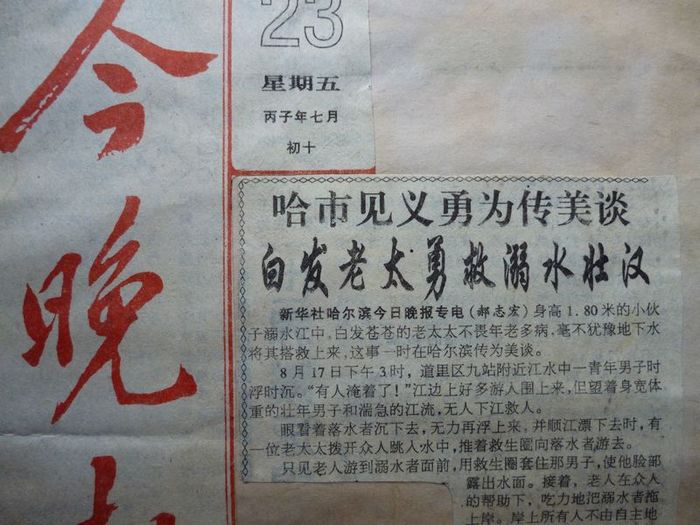 今
晚
23
星期五
丙子年七月
初十
哈市见义勇为传美谈
白发老太勇救溺水壮汉
新华社哈尔滨今日晚报专电(郝志宏)身高1.80米的小伙
子溺水江中,白发苍苍的老太太不畏年老多病,毫不犹豫地下水
将其搭救上来,这事一时在哈尔滨传为美谈。
8月17日下午3时,道里区九站附近江水中一青年男子时
浮时沉。“有人淹着了!”江边上好多游人围上来,但望着身宽体
重的壮年男子和湍急的江流,无人下江救人。
眼看着落水者沉下去,无力再浮上来,并顺江漂下去时,有
一位老太太拨开众人跳入水中,推着救生圈向落水者游去。
只见老人游到溺水者面前,用救生圈套住那男子,使他脸部
露出水面。接着,老人在众人
的帮助下,吃力地把溺水者拖
上岸。岸上所有人不由自主地